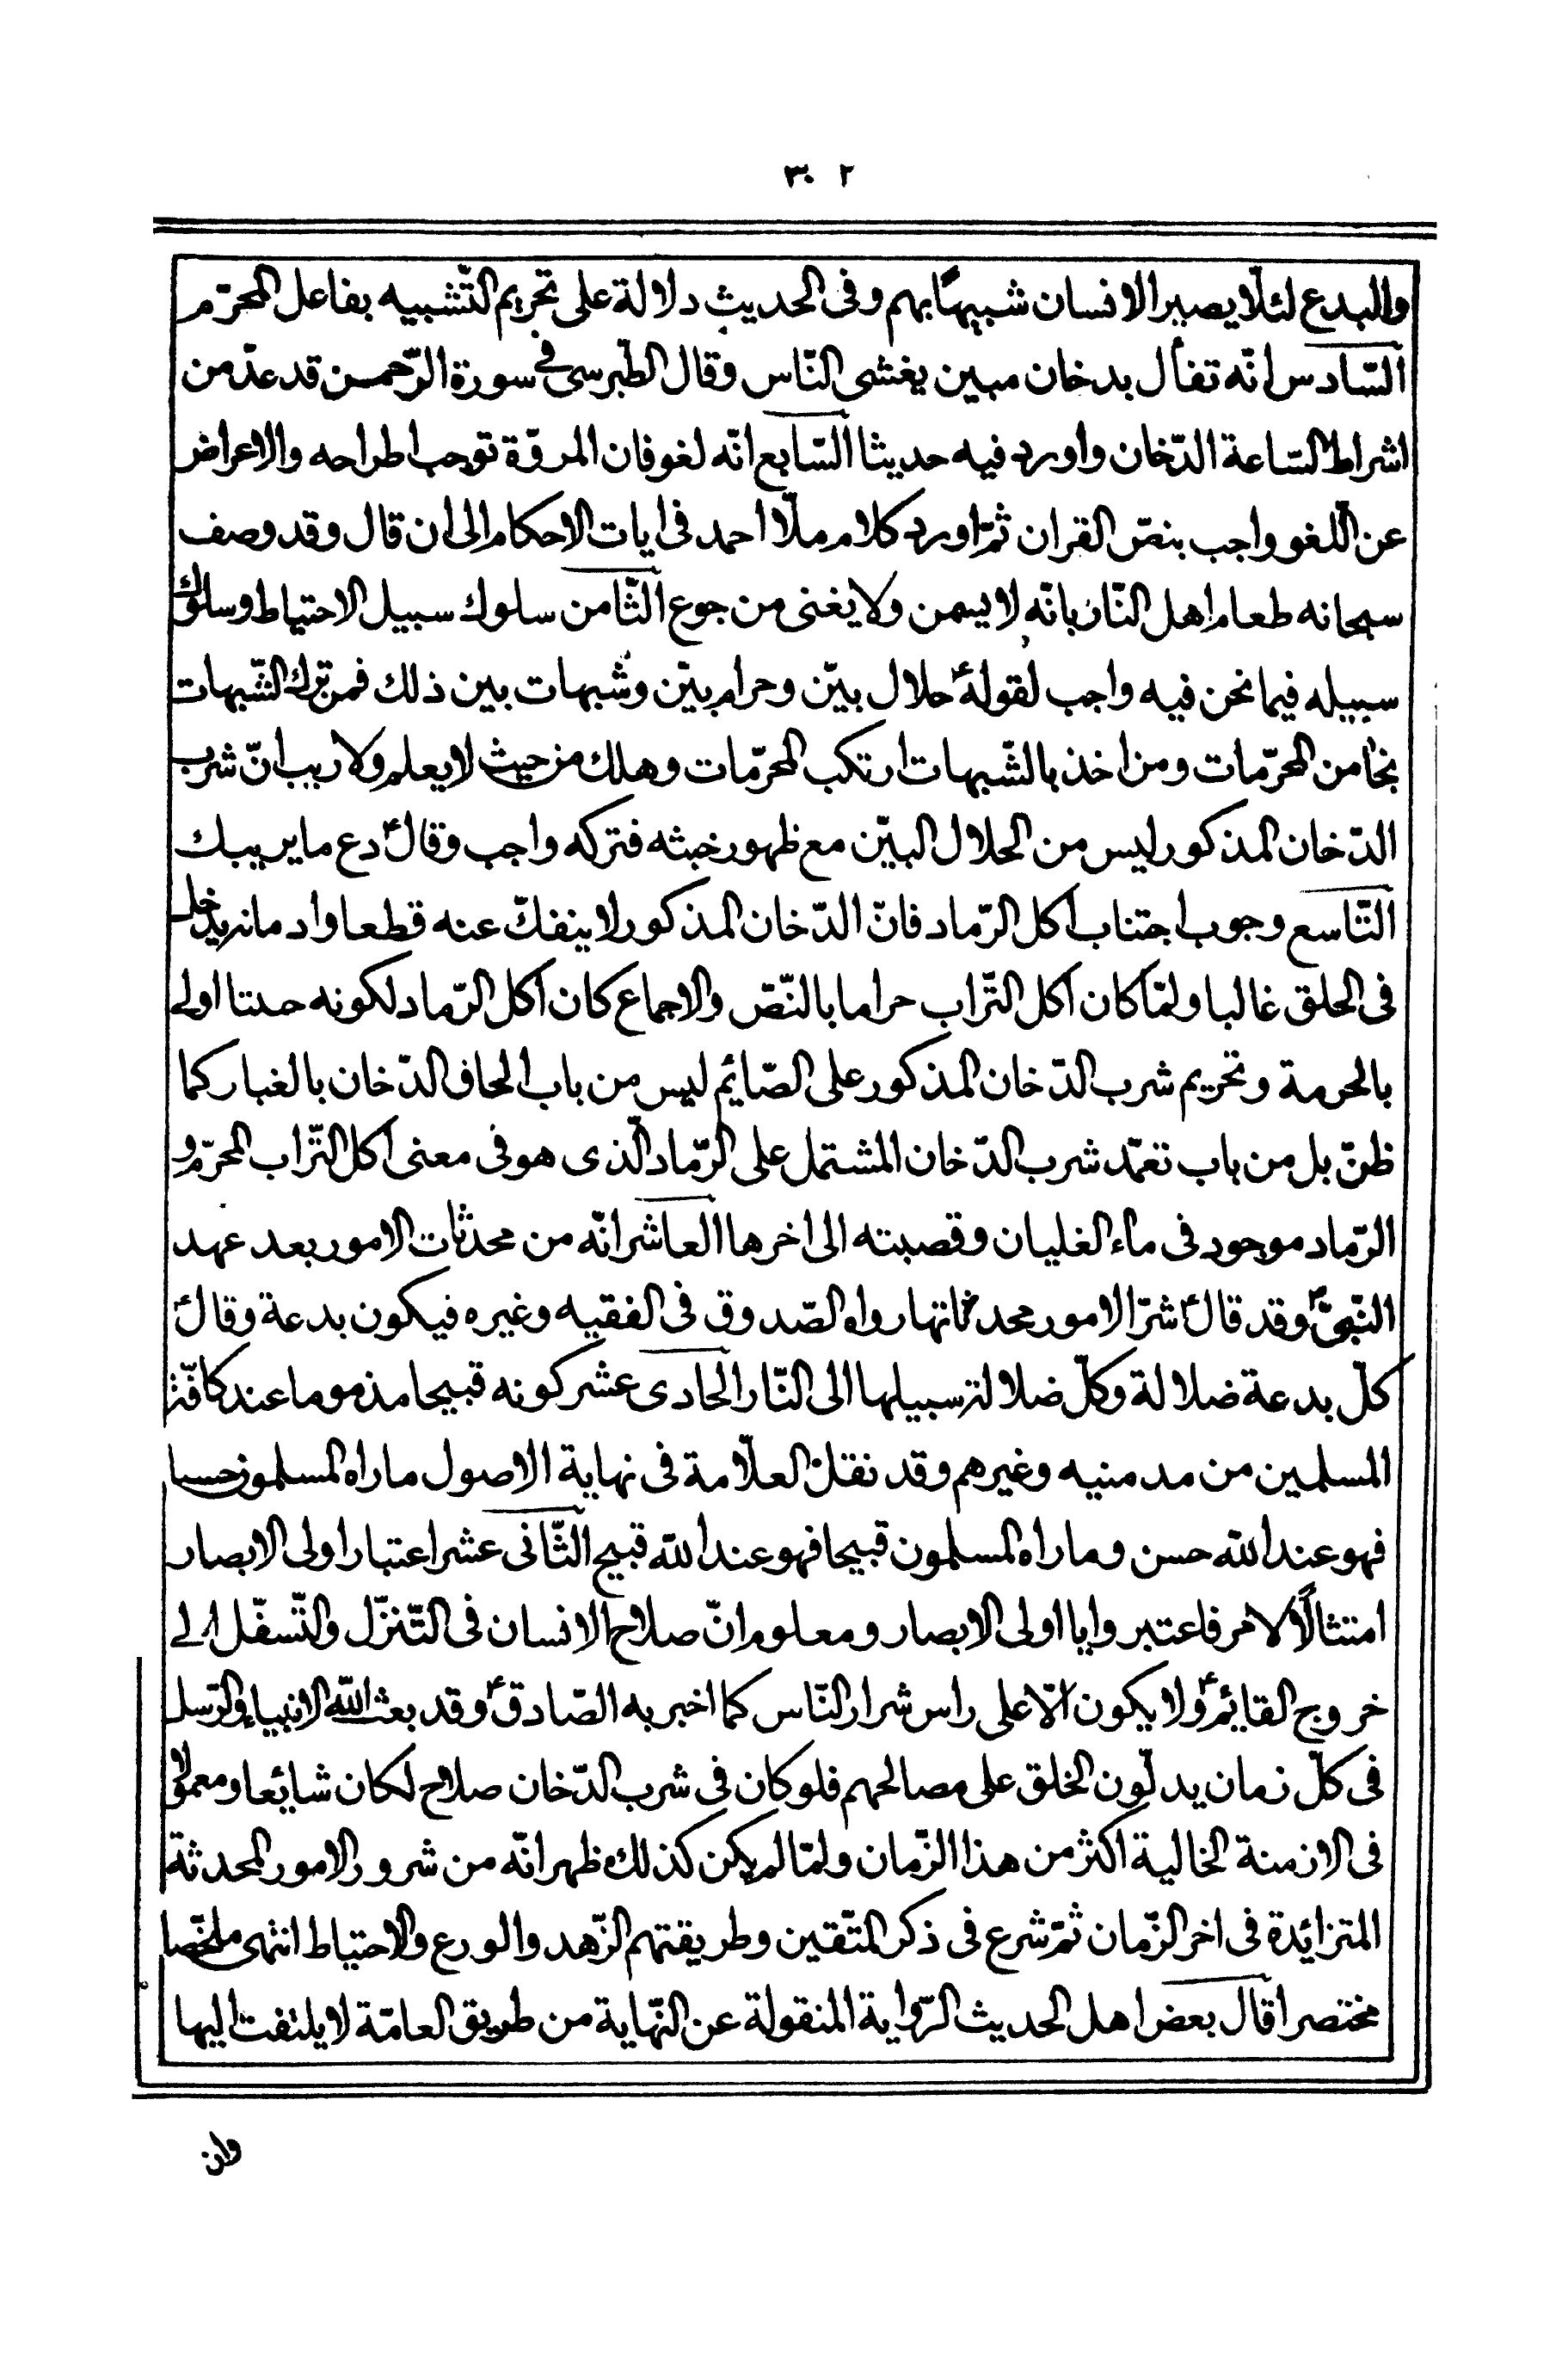 ٣٠٢
والبدع لئلّا يصير الانسان شبيهًا بهم وفى الحديث دلالة على تحريم التّشبيه بفاعل المحرّم
السّادس انّه تفأل بدخان مبين يغشى النّاس وقال الطّبرسى فى سورة الرّحمن قد عدّ من
اشراط السّاعة الدّخان واورد فيه حديثا السّابع انّه لغو فان المروّة توجب اطراحه والاعراض
عن اللّغو واجب بنصّ القران ثمّ اورد كلام ملّا احمد فى ايات الاحكام الى ان قال وقد وصف
سبحانه طعام اهل النّار بانّه لا يسمن ولا يغنى من جوع الثّامن سلوك سبيل الاحتياط وسلوك
سبيله فيما نحن فيه واجب لقوله ؑ حلال بيّن وحرام بيّن وشبهات بين ذلك فمن ترك الشّبهات
نجا من المحرّمات ومن اخذ بالشّبهات ارتكب المحرّمات وهلك من حيث لا يعلم ولا ريب انّ شرب
الدّخان المذكور ليس من الحلال البيّن مع ظهور خبثه فتركه واجب وقال ؑ دع ما يريبك
التّاسع وجوب اجتناب اكل الرّماد فانّ الدّخان المذكور لا ينفكّ عنه قطعا وادمانه يدخل
فى الحلق غالبا ولمّا كان اكل التّراب حراما بالنّصّ والاجماع كان اكل الرّماد لكونه اولى
بالحرمة وتحريم شرب الدّخان المذكور على الصّائم ليس من باب الحاق الدّخان بالغبار كما
ظنّ بل من باب تعمّد شرب الدّخان المشتمل على الرّماد الّذى هو فى معنى اكل التّراب المحرّم و
الرّماد موجود فى ماء الغليان وقصبته الى اخرها العاشر انّه من محدثات الامور بعد عهد
النّبىّ ؐ وقد قال ؑ شرّ الامور محدثاتها رواه الصّدوق فى الفقيه وغيره فيكون بدعة وقال ؑ
كلّ بدعة ضلالة وكلّ ضلالة سبيلها الى النّار الحادى عشر كونه قبيحا مذموما عند كافّة
المسلمين من مدمنيه وغيرهم وقد نقل العلّامة فى نهاية الاصول ما راه المسلمون حسنا
فهو عند الله حسن وما راه المسلمون قبيحا فهو عند الله قبيح الثّانى عشر اعتبار اولى الابصار
امتثالًا لامر فاعتبروا يا اولى الابصار ومعلوم انّ صلاح الانسان فى التّنزّل والتّسفّل الى
خروج القايم ؑ ولا يكون الّا على راس شرار النّاس كما اخبر به الصّادق ؑ وقد بعث الله الانبياء والرّسل
فى كلّ زمان يدلّون الخلق على مصالحهم فلو كان فى شرب الدّخان صلاح لكان شايعا ومعمولا
فى الازمنة الخالية اكثر من هذا الزّمان ولمّا لم يكن كذلك ظهر انّه من شرور الامور المحدثة
المتزائدة فى اخر الزّمان ثمّ شرع فى ذكر المتّقين وطريقتهم الزّهد والورع والاحتياط انتهى ملخّصا
مختصرا قال بعض اهل الحديث الرّواية المنقولة عن النّهاية من طريق العامّة لا يلتفت اليها
وان